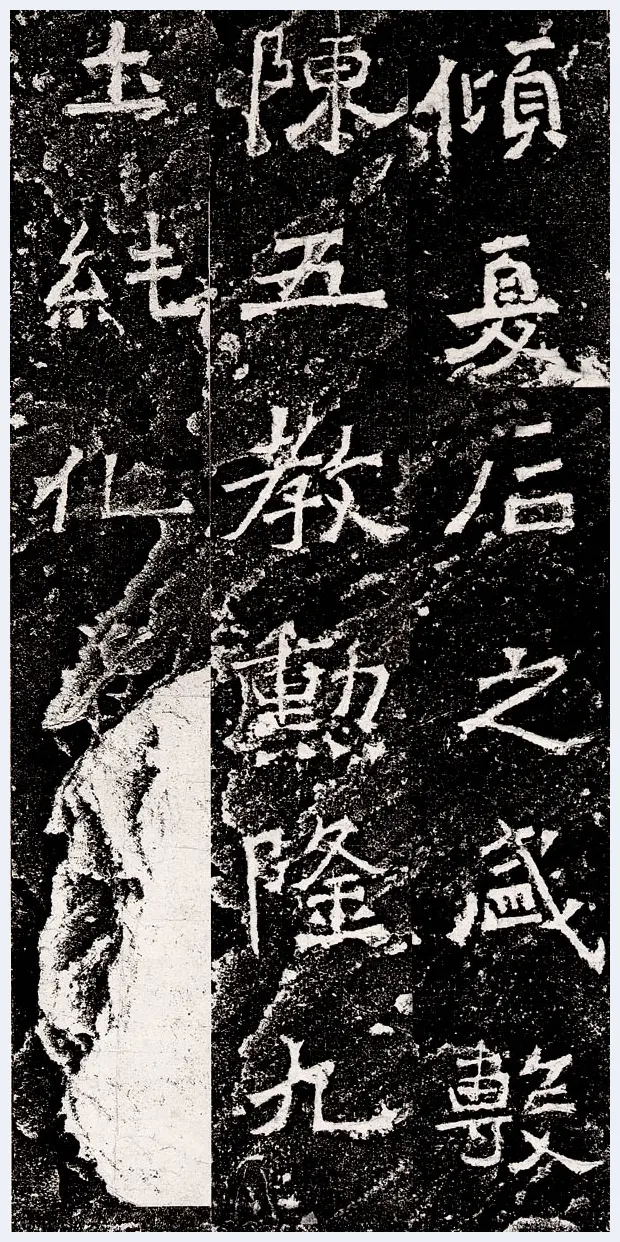 傾夏后之盛敷
陳五教勳隆九
土純化